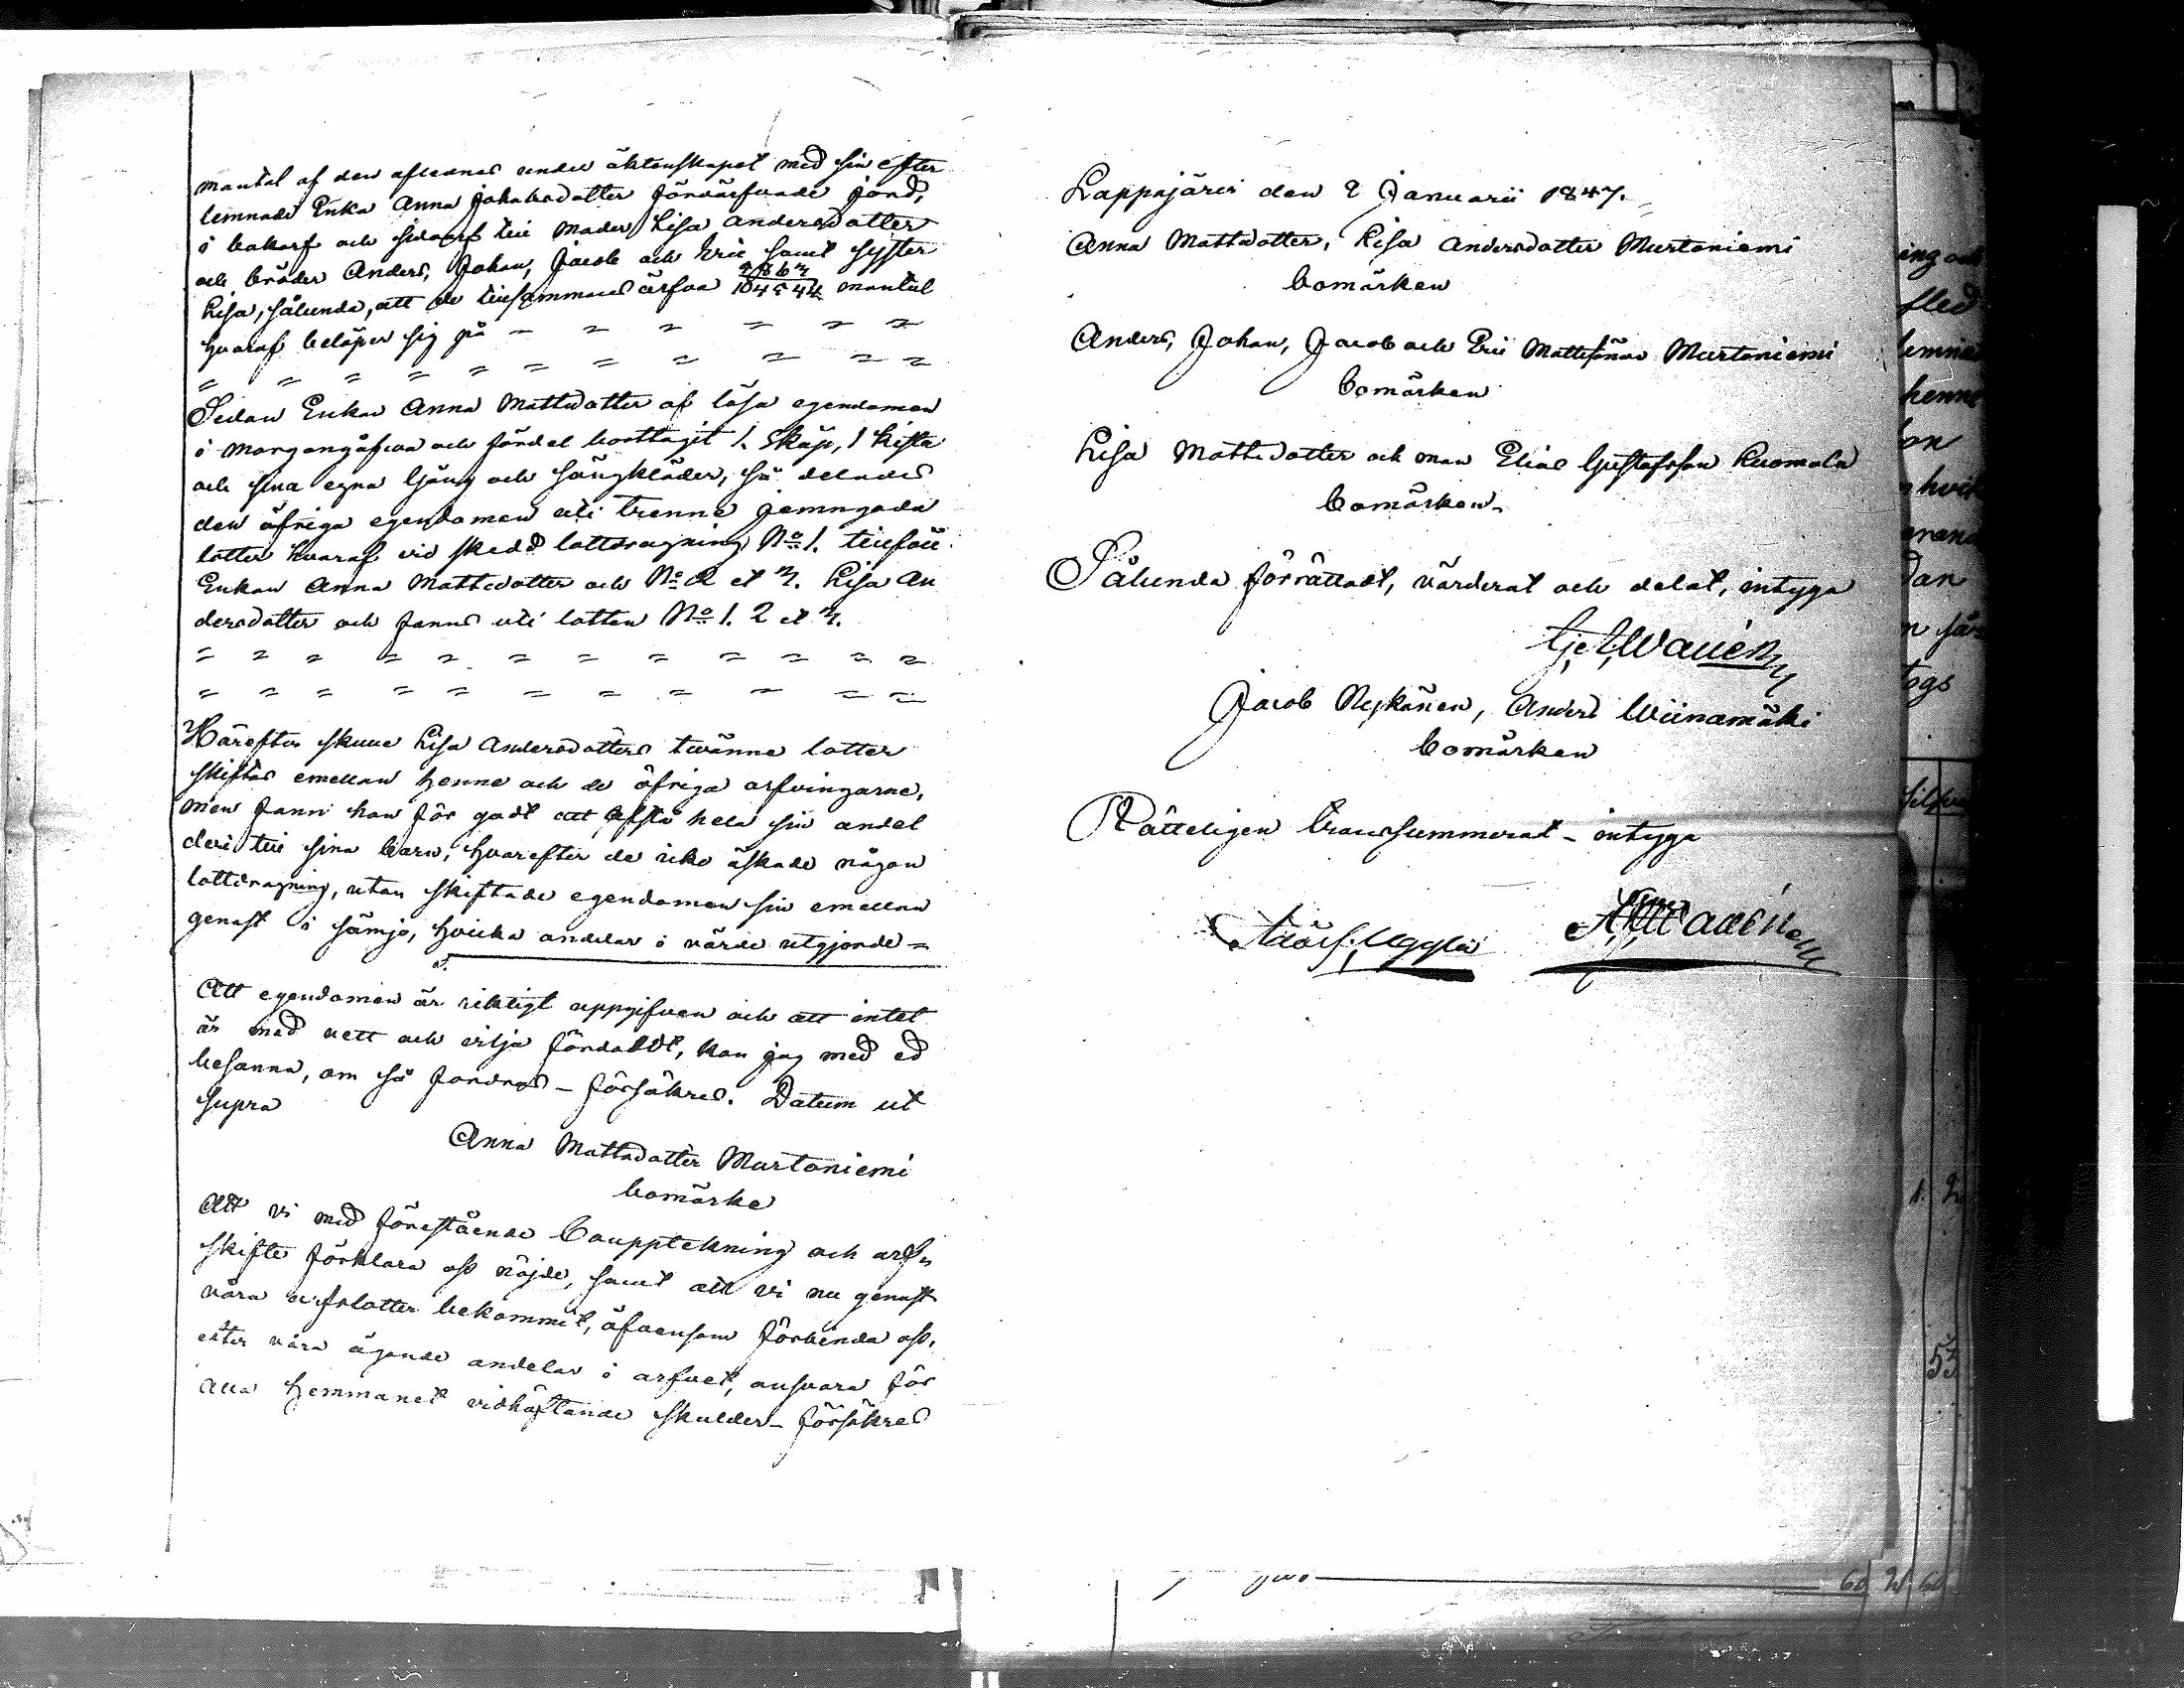 mantal af den aflednes under äktenskapet med sin efter
lemnade Enka Anna Jakobsdotter förvärfvade jord,
i bakarf och sidoarf till Moder Lisa Andersdotter
och bröder Anders, Johan, Jacob och Eric samt syster
Lisa, sålunda, att de tillsammans ärfva mantal
hvaraf belöper sig på – = = = = =
= = = = = = = = = = =
Sedan Enkan Anna Mattsdotter af lösa egendomen
i morgongåfva och fördel borttagit 1. Skåp, 1 Kista
och sina egna gång och sängkläder, så delades
den öfriga egendomen uti trenne jemngoda
lotter hvaraf vid skedd lottdragning No 1. tillföll
Enkan Anna Mattsdotter och No 2 et 3. Lisa An
dersdotter och fanns uti lotten No 1. 2 et 3.
= = = = = = = = = = = =
= = = = = = = = = = =
Härefter skulle Lisa Andersdotters tvänne lotter
skiftas emellan henne och de öfriga arfvingarne,
men fann hon för godt att afstå hela sin andel
deri till sina barn, hvarefter de icke äskade någon
lottdragning, utan skiftade egendomen sin emellan
genast i sämjo, hvilka andelar i värde utgjorde =
Att egendomen är riktigt uppgifven och att intet
är med vett och vilja fördoldt, kan jag med ed
besanna, om så fordras – försäkras. Datum ut
supra
Anna Mattsdotter Murtoniemi
bomärke
Att vi med förestående Bouppteckning och arf-
skifte förklara oss nöjde, samt att vi nu genast
våra arfslotter bekommit, äfvensom förbinda oss,
efter våra ägande andelar i arfvet, ansvara för
alla hemmanet vidhäftande skulder – försäkras
Lappajärvi den 2 Januarii 1847.
Anna Mattsdotter, Lisa Andersdotter Murtoniemi
bomärken
Anders, Johan, Jacob och Eric Mattssöner Murtoniemi
bomärken
Lisa Mattsdotter och man Elias Gustafsson Kuomala
bomärken
Sålunda förrättadt, värderat och delat, intyga
Jacob Nykänen, Anders Wiinamäki
bomärken
Rätteligen transsummerat – intyga
Adolf Uggla